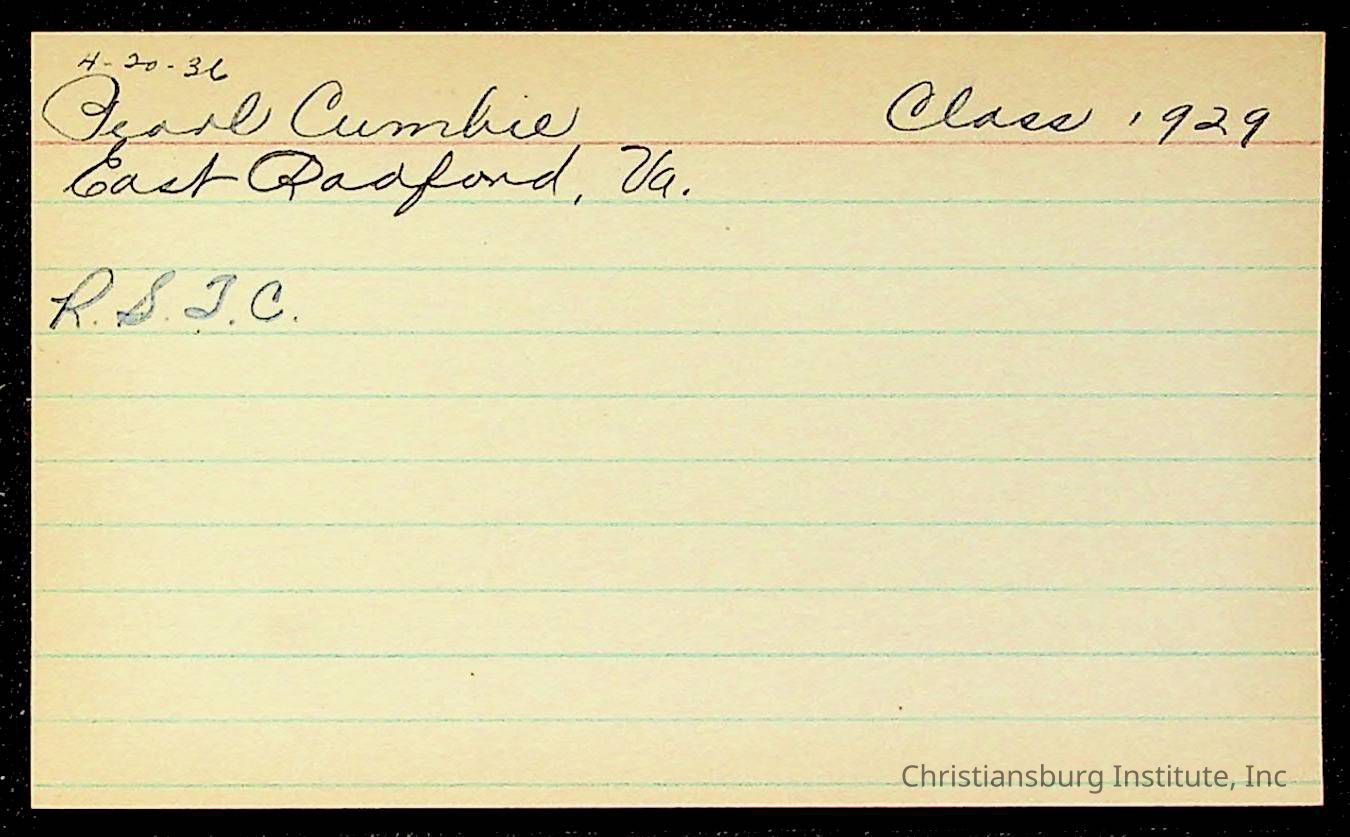 4-20-36
Pearl Cumbie Class 1929
East Radford, Va.
R. S. T. C.
Christiansburg Institute, Inc